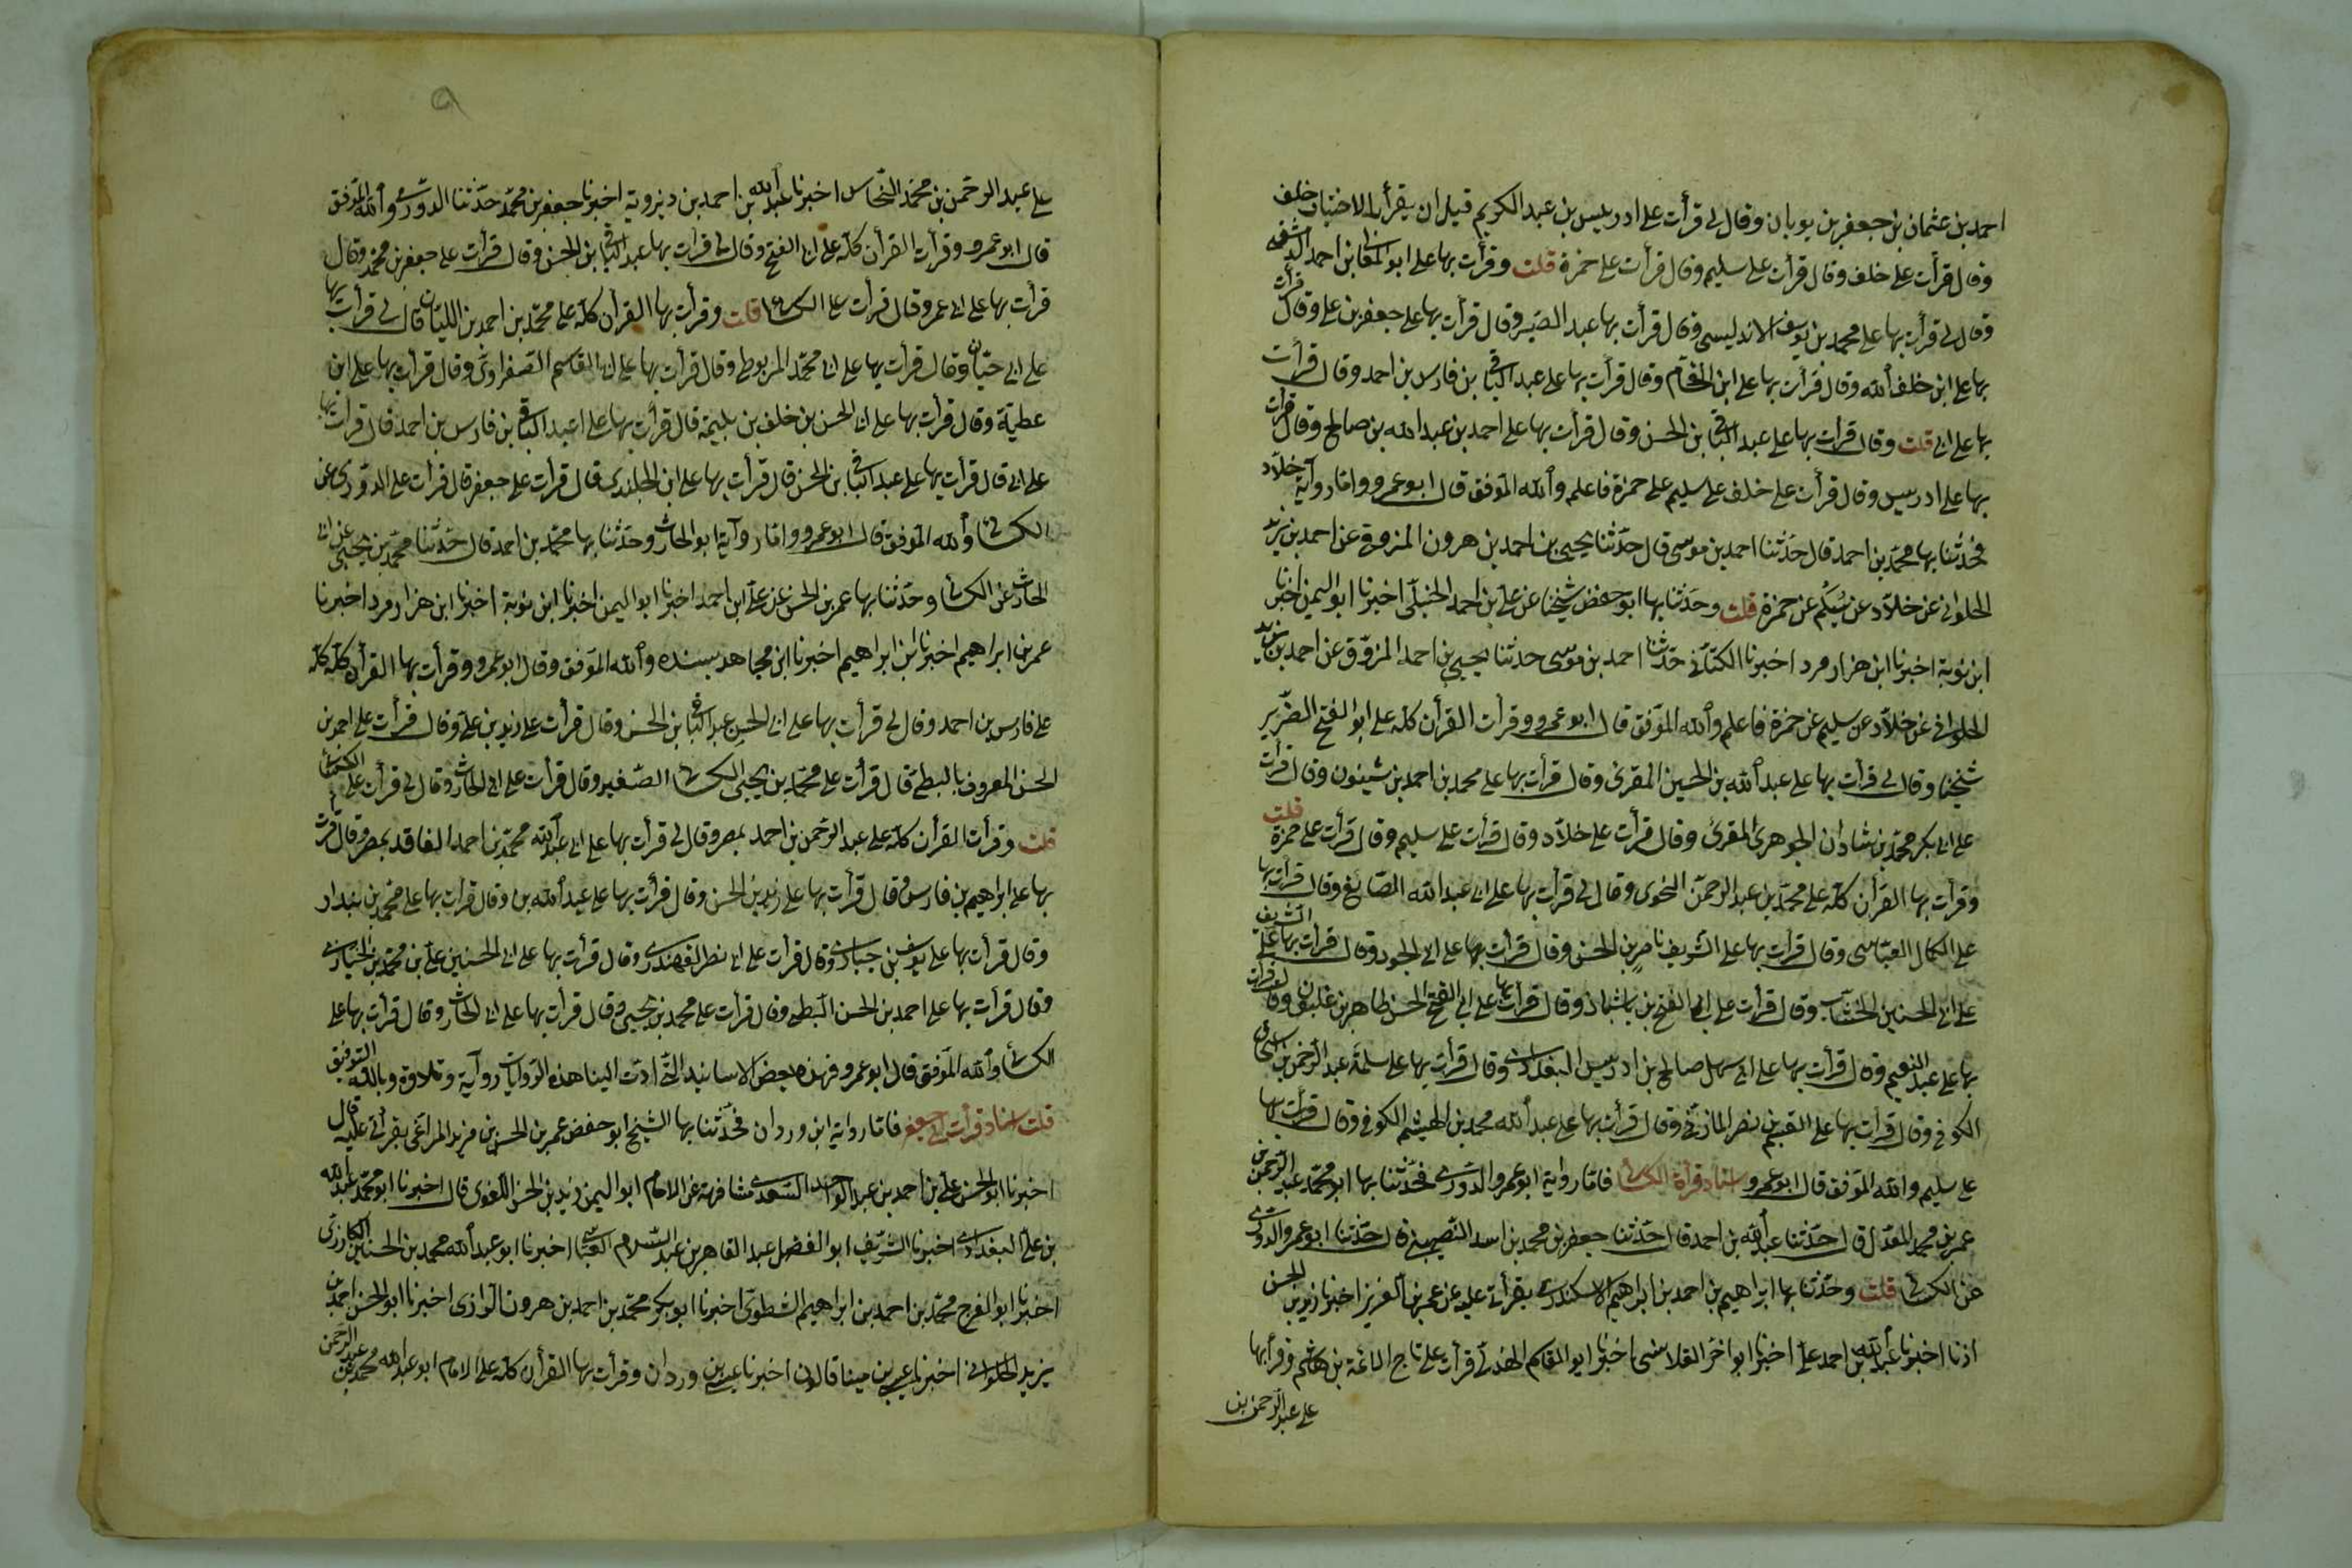 احمد بن عثمان بن جعفر بن بويان وقال لي قرأت على ادريس بن عبد الكريم قبل ان يقرأ بالاختيار خلف
وقال قرأت على خلف وقال قرأت على سليم وقال قرأت على حمزة قلت وقرأت بها على ابو المعالي بن احمد الدمشقي
وقال لي قرأت بها على محمد بن يوسف الاندلسي وقال قرأت بها عبد النصير وقال قرأت بها على جعفر بن علي وقال قرأت
بها على ابن خلف الله وقال قرأت بها على ابن الفحام وقال قرأت بها على عبد الباقي بن فارس بن احمد وقال قرأت
بها على ابي قلت وقال قرأت بها على عبد الباقي بن الحسن وقال قرأت بها على احمد بن عبد الله بن صالح وقال قرأت
بها على ادريس وقال قرأت على خلف على سليم على حمزة فاعلم والله الموفق قال ابو عمرو واما رواية خلاد
فحدثنا بها محمد بن احمد قال حدثنا احمد بن موسى قال حدثنا يحيى بن احمد بن هرون المزوق عن احمد بن يزيد
الحلواني عن خلاد عن سليم عن حمزة قلت وحدثنا بها ابو حفص شيخنا عن علي بن احمد الحنبلي اخبرنا ابو اليمن اخبرنا
ابن توبة اخبرنا ابن هزارمرد اخبرنا الكتاني حدثنا احمد بن موسى حدثنا يحيى بن احمد المزوق عن احمد بن يزيد
الحلواني عن خلاد عن سليم عن حمزة فاعلم والله الموفق قال ابو عمرو وقرأت القرأن كله على ابو الفتح الضرير
شيخنا وقال لي قرأت بها على عبد الله بن الحسين المقرئ وقال قرأت بها على محمد بن احمد بن شنبوذ وقال قرأت
على ابي بكر محمد بن شاذان الجوهري المقرئ وقال قرأت على خلاد وقال قرأت على سليم وقال قرأت على حمزة قلت
وقرأت بها القرأن كله على محمد بن عبد الرحمن النحوي وقال لي قرأت بها على ابي عبد الله الصايغ وقال قرأت بها
على الكمال العباسي وقال قرأت بها على الشريف ناصر بن الحسن وقال قرأت بها على ابي الجود وقال قرأت بها على الشريف
على ابي الحسين الخشاب وقال قرأت على ابي الفتح بن بابشاذ وقال قرأت بها على ابي الفتح الحسن طاهر بن غلبون وقال قرأت
بها على عبد المنعم وقال قرأت بها على ابي سهل صالح بن ادريس البغدادي وقال قرأت بها على سلمة عبد الرحمن بن اسحاق
الكوفي وقال قرأت بها على القسم بن نصر المازني وقال قرأت بها على عبد الله محمد بن الهيثم الكوفي وقال قرأت بها
على سليم والله الموفق قال ابو عمرو اسناد قرأة الكسائي فاما رواية ابو عمرو الدوري فحدثنا بها ابو محمد عبد الرحمن بن
عمر بن محمد المعدل قال حدثنا عبد الله بن احمد قال حدثنا جعفر بن محمد بن اسد النصيبيني قال حدثنا ابو عمرو الدوري
عن الكسائي قلت وحدثنا بها ابراهيم بن احمد بن ابراهيم الاسكندري بقرأتي عليه عن عمر بن الغزيز اخبرنا زيد بن الحسن
اذنا اخبرنا عبد الله بن احمد علي اخبرنا ابو العز القلانسي اخبرنا ابو القاسم الهذلي قرأت على تاج الائمة بن هاشم وقرأ بها
على عبد الرحمن بن
على عبد الرحمن بن محمد النحاس اخبرنا عبد الله بن احمد بن ديزوية اخبرنا جعفر بن محمد حدثنا الدوري والله الموفق
قال ابو عمرو وقرأت القرأن كله على ابي الفتح وقال لي قرأت بها عبد الباقي بن الحسن وقال قرأت على جعفر بن محمد وقال
قرأت بها على ابي عمر وقال قرأت على الكسائي قلت وقرأت بها القرأن كله على محمد بن احمد بن اللبان قال لي قرأت بها
على ابي حيان وقال قرأت بها على ابي محمد المربوطي وقال قرأت بها على ابي القاسم الصفراوي وقال قرأت بها على ابن
عطية وقال قرأت بها على ابي الحسن بن خلف بن بليمة قال قرأت بها على عبد الباقي بن فارس بن احمد قال قرأت بها
على ابي قال قرأت بها على عبد الباقي بن الحسن قال قرأت بها على ابن الجلندي قال قرأت على جعفر قال قرأت على الدوري عن
الكسائي والله الموفق قال ابو عمرو واما رواية ابو الحارث وحدثنا بها محمد بن احمد قال حدثنا محمد بن يحيى عن ابي
الحارث عن الكسائي وحدثنا بها عمر بن الحسن عن علي ابن احمد اخبرنا ابو اليمن اخبرنا ابن توبة اخبرنا ابن هزارمرد اخبرنا
عمر بن ابراهيم اخبرنا ابن ابراهيم اخبرنا ابن مجاهد بسنده والله الموفق وقال ابو عمرو وقرأت بها القرأن كله كله
على فارس بن احمد وقال لي قرأت بها على ابي الحسن عبد الباقي بن الحسن وقال قرأت على زيد بن علي وقال قرأت على احمد بن
الحسن المعروف بالبطي قال قرأت على محمد بن يحيى الكسائي الصغير وقال قرأت على ابي الحارث وقال لي قرأت على الكسائي
قلت وقرأت القرأن كله على عبد الرحمن بن احمد بمصر وقال لي قرأت بها على ابي عبد الله محمد بن احمد الفاقد بمصر وقال قرأت
بها على ابراهيم بن فارس وقال قرأت بها على زيد بن الحسن وقال قرأت بها على عبد الله بن وقال قرأت بها على محمد بن بندار
وقال قرأت بها على يوسف بن جبارة وقال قرأت على ابي نصر القهندزي وقال قرأت بها على ابي الحسين علي بن محمد بن الخبازي
وقال قرأت بها على احمد بن الحسن البطي وقال قرأت على محمد بن يحيى وقال قرأت بها على ابي الحارث وقال قرأت بها على
الكسائي والله الموفق قال ابو عمرو فهذه بعض الاسانيد التي ادت الينا هذه الروايات رواية وتلاوة وبالله التوفيق
قلت اسناد قرأت ابي جعفر فاما رواية ابن وردان فحدثنا بها الشيخ ابو حفص عمر بن الحسن بن مزيد المراغي بقرأتي عليه قال
اخبرنا ابو الحسن علي بن احمد بن عبد الواحد السعدي مشافهة عن الامام ابو اليمن زيد بن الحسن اللغوي قال اخبرنا ابو محمد عبد الله
بن علي البغدادي اخبرنا الشريف ابو الفضل عبد القاهر بن عبد السلام العباسي اخبرنا ابو عبد الله محمد بن الحسين الكارزي
اخبرنا ابو الفرج محمد بن احمد بن ابراهيم الشطوي اخبرنا ابو بكر محمد بن احمد بن هرون الرازي اخبرنا ابو الحسن احمد بن
يزيد الحلواني اخبرنا عيسى بن مينا قالون اخبرنا عيسى بن وردان وقرأت بها القرأن كله على الامام ابو عبد الله محمد بن عبد الرحمن